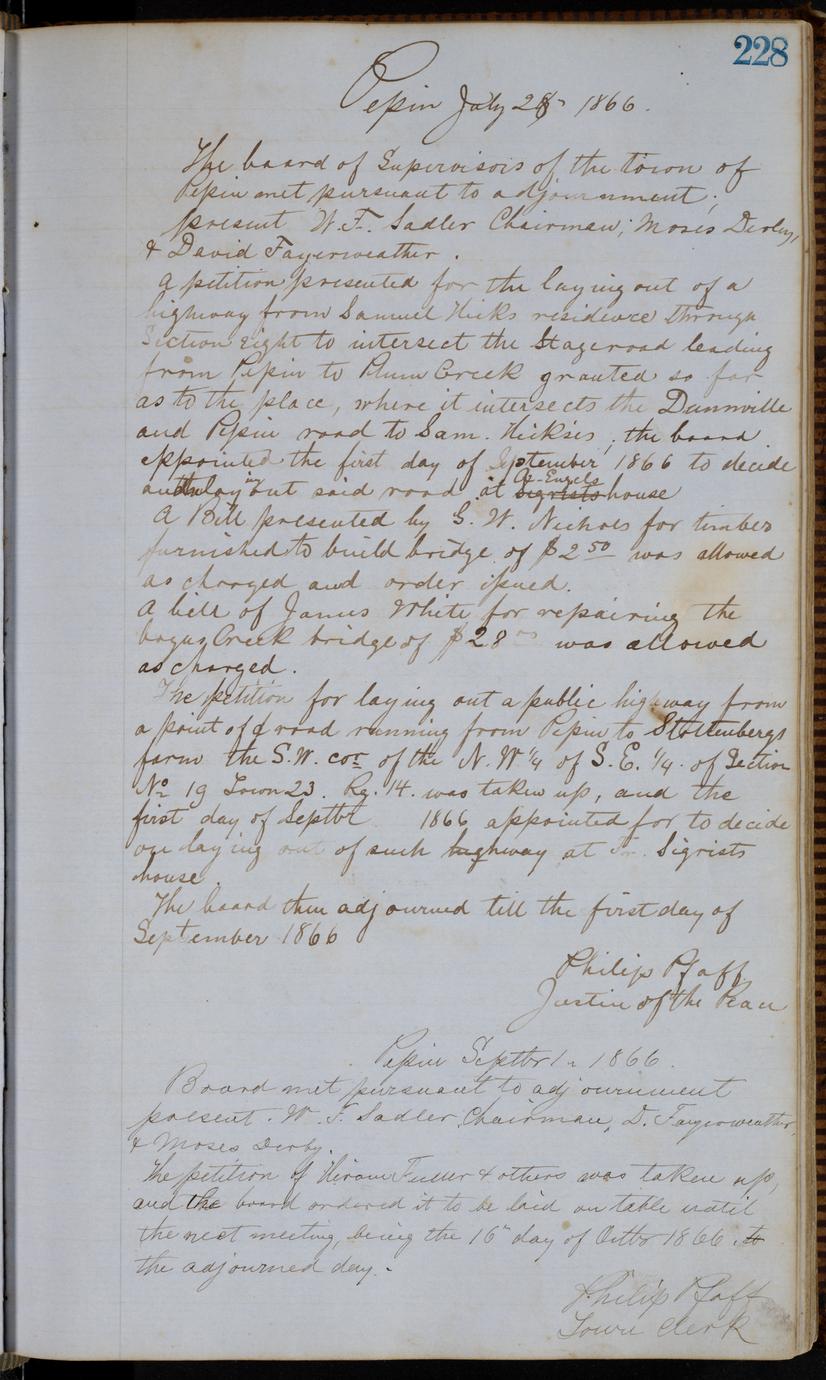 228
Pepin July 28th 1866.
The board of Supervisors of the town of
Pepin met pursuant to adjournment;
present W. F. Sadler Chairman; Moses Derby,
& David Fayerweather.
A petition presented for the laying out of a
highway from Samuel Hicks residence through
Section eight to intersect the Stageroad leading
from Pepin to Plum Creek granted so far
as to the place, where it intersects the Dunnville
and Pepin road to Sam. Hickses; the board
appointed the first day of September 1866 to decide
lay out said road at Sigrists house
A Bill presented by G. W. Nichols for timber
furnished to build bridge of $2 50 was allowed
as charged and order issued.
A bill of James White for repairing the
bogus Creek bridge of $28 was allowed
as charged.
The petition for laying out a public highway from
a point of road running from Pepin to Stoltenbergs
farm the S.W. cor of the N.W 1/4 of S.E. 1/4. of Section
No 19 Town 23. Rg. 14. was taken up, and the
first day of Septbr 1866 appointed for to decide
on laying out of such highway at Sigrists
house
The board then adjourned till the first day of
September 1866
Philip Pfaff
Justice of the Peace
Pepin Septbr 1st 1866.
Board met pursuant to adjournment
present. W. F. Sadler, Chairman, D. Fayerweather,
& Moses Derby.
The petition of Hiram Fuller & others was taken up,
and the board ordered it to be laid on table until
the next meeting, being the 16th day of Octbr 1866. to
the adjourned day.
Philip Pfaff
Town Clerk